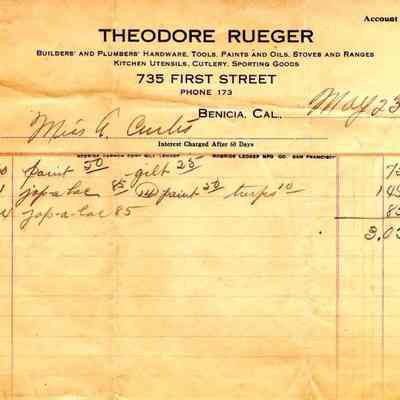 Account
THEODORE RUEGER
BUILDERS' AND PLUMBERS' HARDWARE, TOOLS, PAINTS AND OILS, STOVES AND RANGES
KITCHEN UTENSILS, CUTLERY, SPORTING GOODS
735 FIRST STREET
PHONE 173
BENICIA, CAL., May 23
Miss A. Curtis
Interest Charged After 60 Days
ROBSIDE LEDGER MFG CO. SAN FRANCISCO
0 paint 50 gilt 25 75
1 jap-a-lac 85 paint 50 turps 10 145
jap-a-lac 85 85
3.05